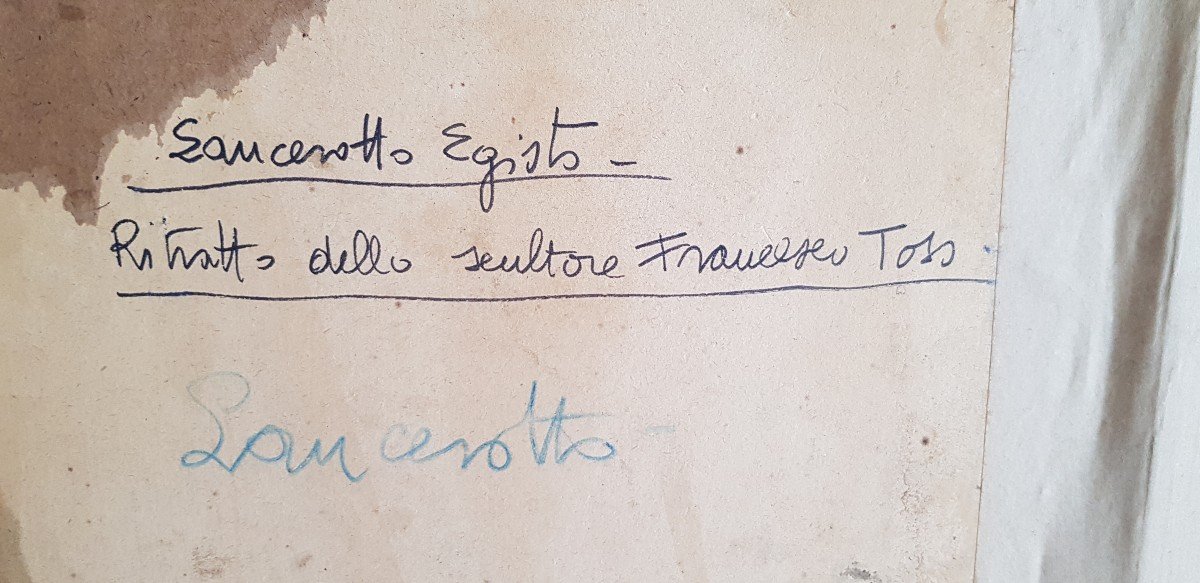 Lancerotto Egisto -
Ritratto dello scultore Francesco Toso.
Lancerotto -